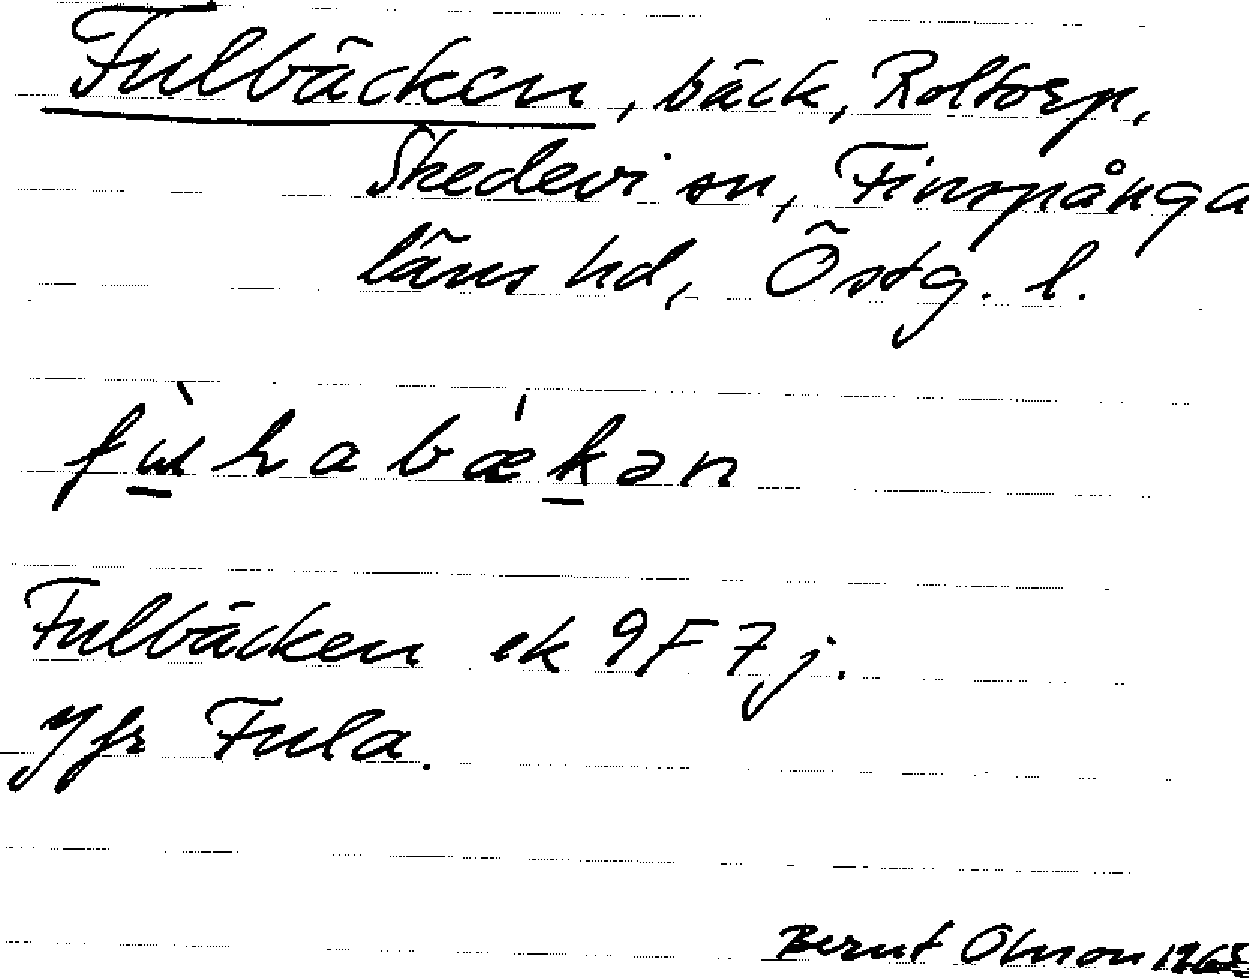 Fulbäcken, bäck, Roltorp,
Skedevi sn, Finspånga
läns hd, Östg. l.
Fulbäcken ek 9F 7j.
Jfr Fula.
Bernt Olsson